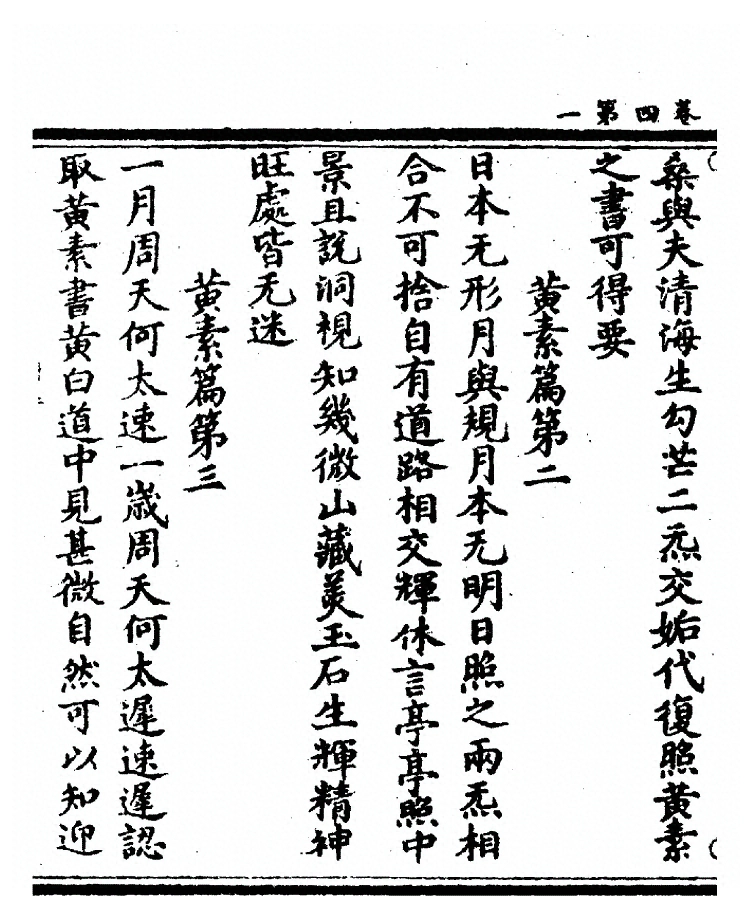 卷四第一
桑與夫清海生勾芒二炁交姤代復照黄素
之書可得要
黄素篇第二
日本无形月與規月本无明日照之兩炁相
合不可捨自有道路相交輝休言亭亭照中
景且說洞視知幾微山藏美玉石生輝精神
旺處皆无迷
黄素篇第三
一月周天何太速一歲周天何太遲速遲認
取黄素書黄白道中見甚微自然可以知迎